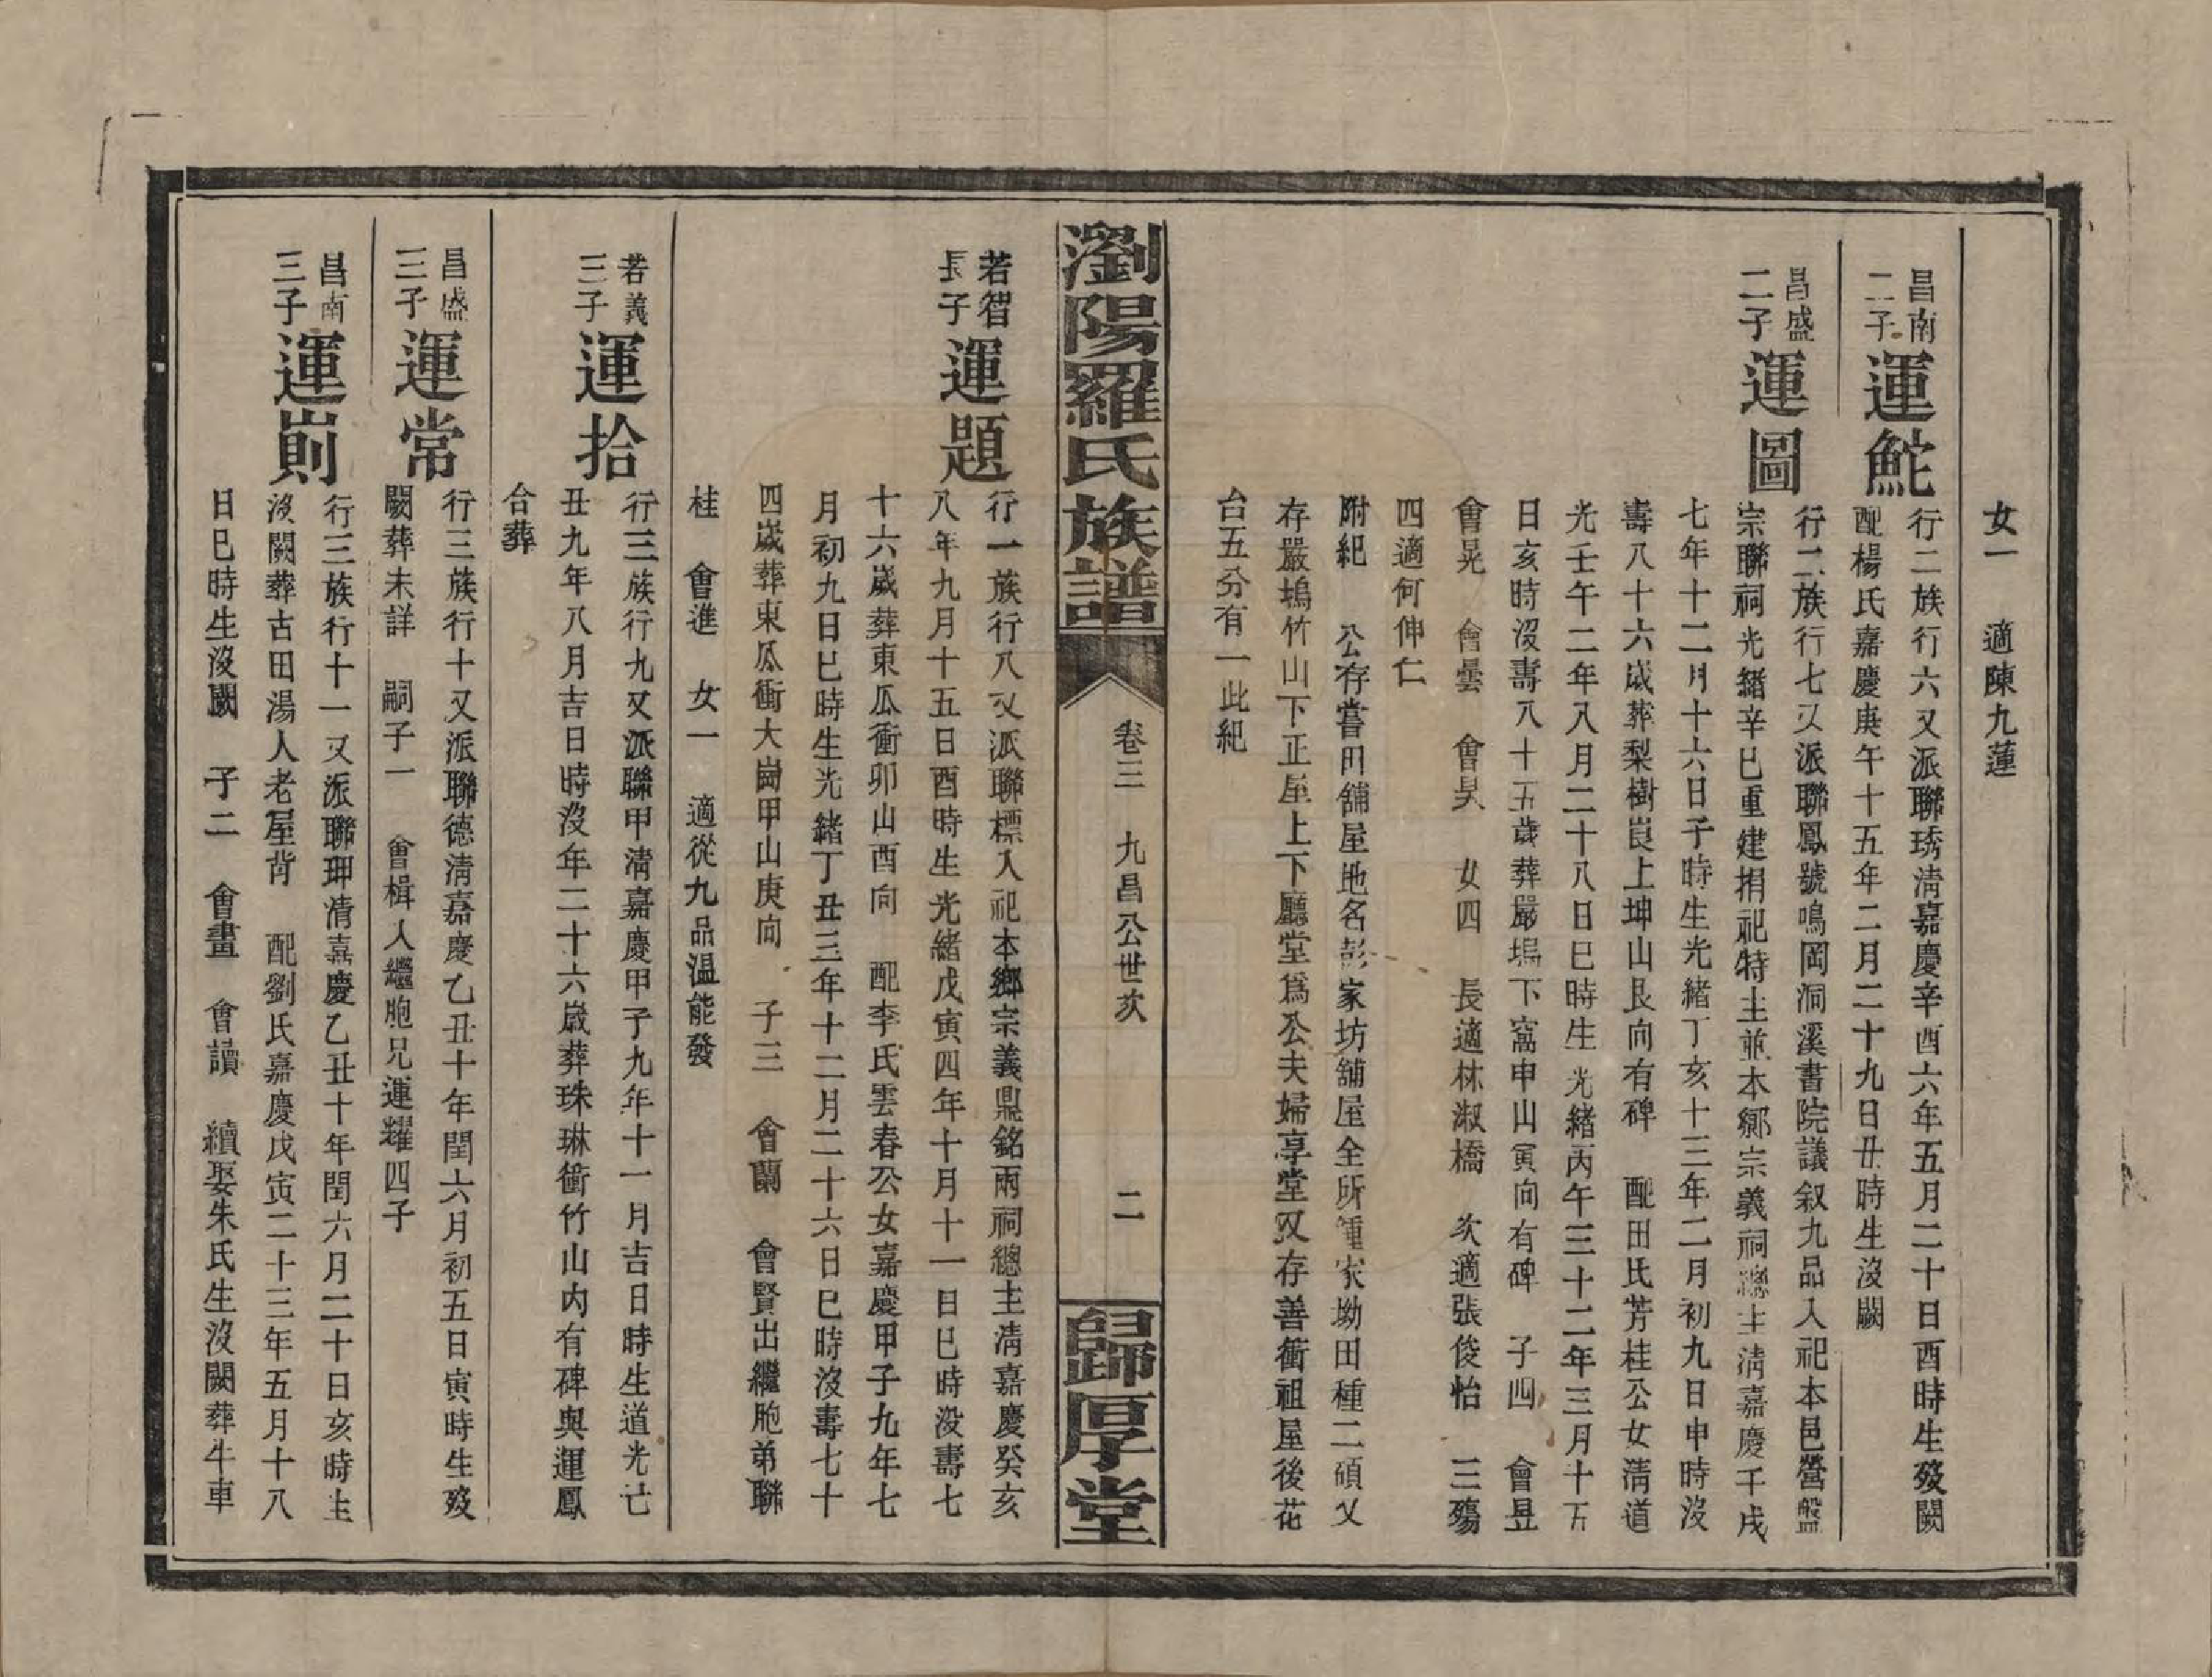 女一　適陳九蓮
昌南二子　運鮀　行二族行六又派聯琇清嘉慶辛酉六年五月二十日酉時生歿闕
配楊氏嘉慶庚午十五年二月二十九日丑時生沒闕
昌盛二子　運圖　行二族行七又派聯鳳號鳴岡洞溪書院議叙九品入祀本邑營盤
宗聯祠光緒辛巳重建捐祀特主並本鄉宗義祠總主清嘉慶壬戌
七年十二月十六日子時生光緒丁亥十三年二月初九日申時沒
壽八十六歲葬梨樹崀上坤山艮向有碑　配田氏芳桂公女清道
光壬午二年八月二十八日巳時生光緒丙午三十二年三月十五
日亥時沒壽八十五歲葬嚴塢下窩申山寅向有碑　子四　會昱
會晃　會曇　會昊　女四　長適林淑橋　次適張俊怡　三殤
四適何伸仁
附紀　公存嘗田舖屋地名彭家坊舖屋全所鍾家坳田種二碩又
存嚴塢竹山下正屋上下廳堂爲公夫婦享堂又存善衝祖屋後花
台五分有一此紀
瀏陽羅氏族譜　卷三　九昌公世次　二　歸厚堂
若智長子　運題　行一族行八又派聯標入祀本鄉宗義鼎銘兩祠總主清嘉慶癸亥
八年九月十五日酉時生光緒戊寅四年十月十一日巳時没壽七
十六歲葬東瓜衝卯山酉向　配李氏雲春公女嘉慶甲子九年七
月初九日巳時生光緒丁丑三年十二月二十六日巳時沒壽七十
四歲葬東瓜衝大崗甲山庚向　子三　會蘭　會賢出繼胞弟聯
桂　會進　女一　適從九品温能發
若義三子　運拾　行三族行九又派聯甲清嘉慶甲子九年十一月吉日時生道光己
丑九年八月吉日時沒年二十六歲葬珠琳衝竹山內有碑與運鳳
合葬
昌盛三子　運常　行三族行十又派聯德清嘉慶乙丑十年閏六月初五日寅時生歿
闕葬未詳　嗣子一　會楫入繼胞兄運耀四子
昌南三子　運崱　行三族行十一又派聯珅清嘉慶乙丑十年閏六月二十日亥時生
沒闕葬古田湯人老屋背　配劉氏嘉慶戊寅二十三年五月十八
日巳時生沒闕　子二　會畫　會讀　續娶朱氏生沒闕葬牛車